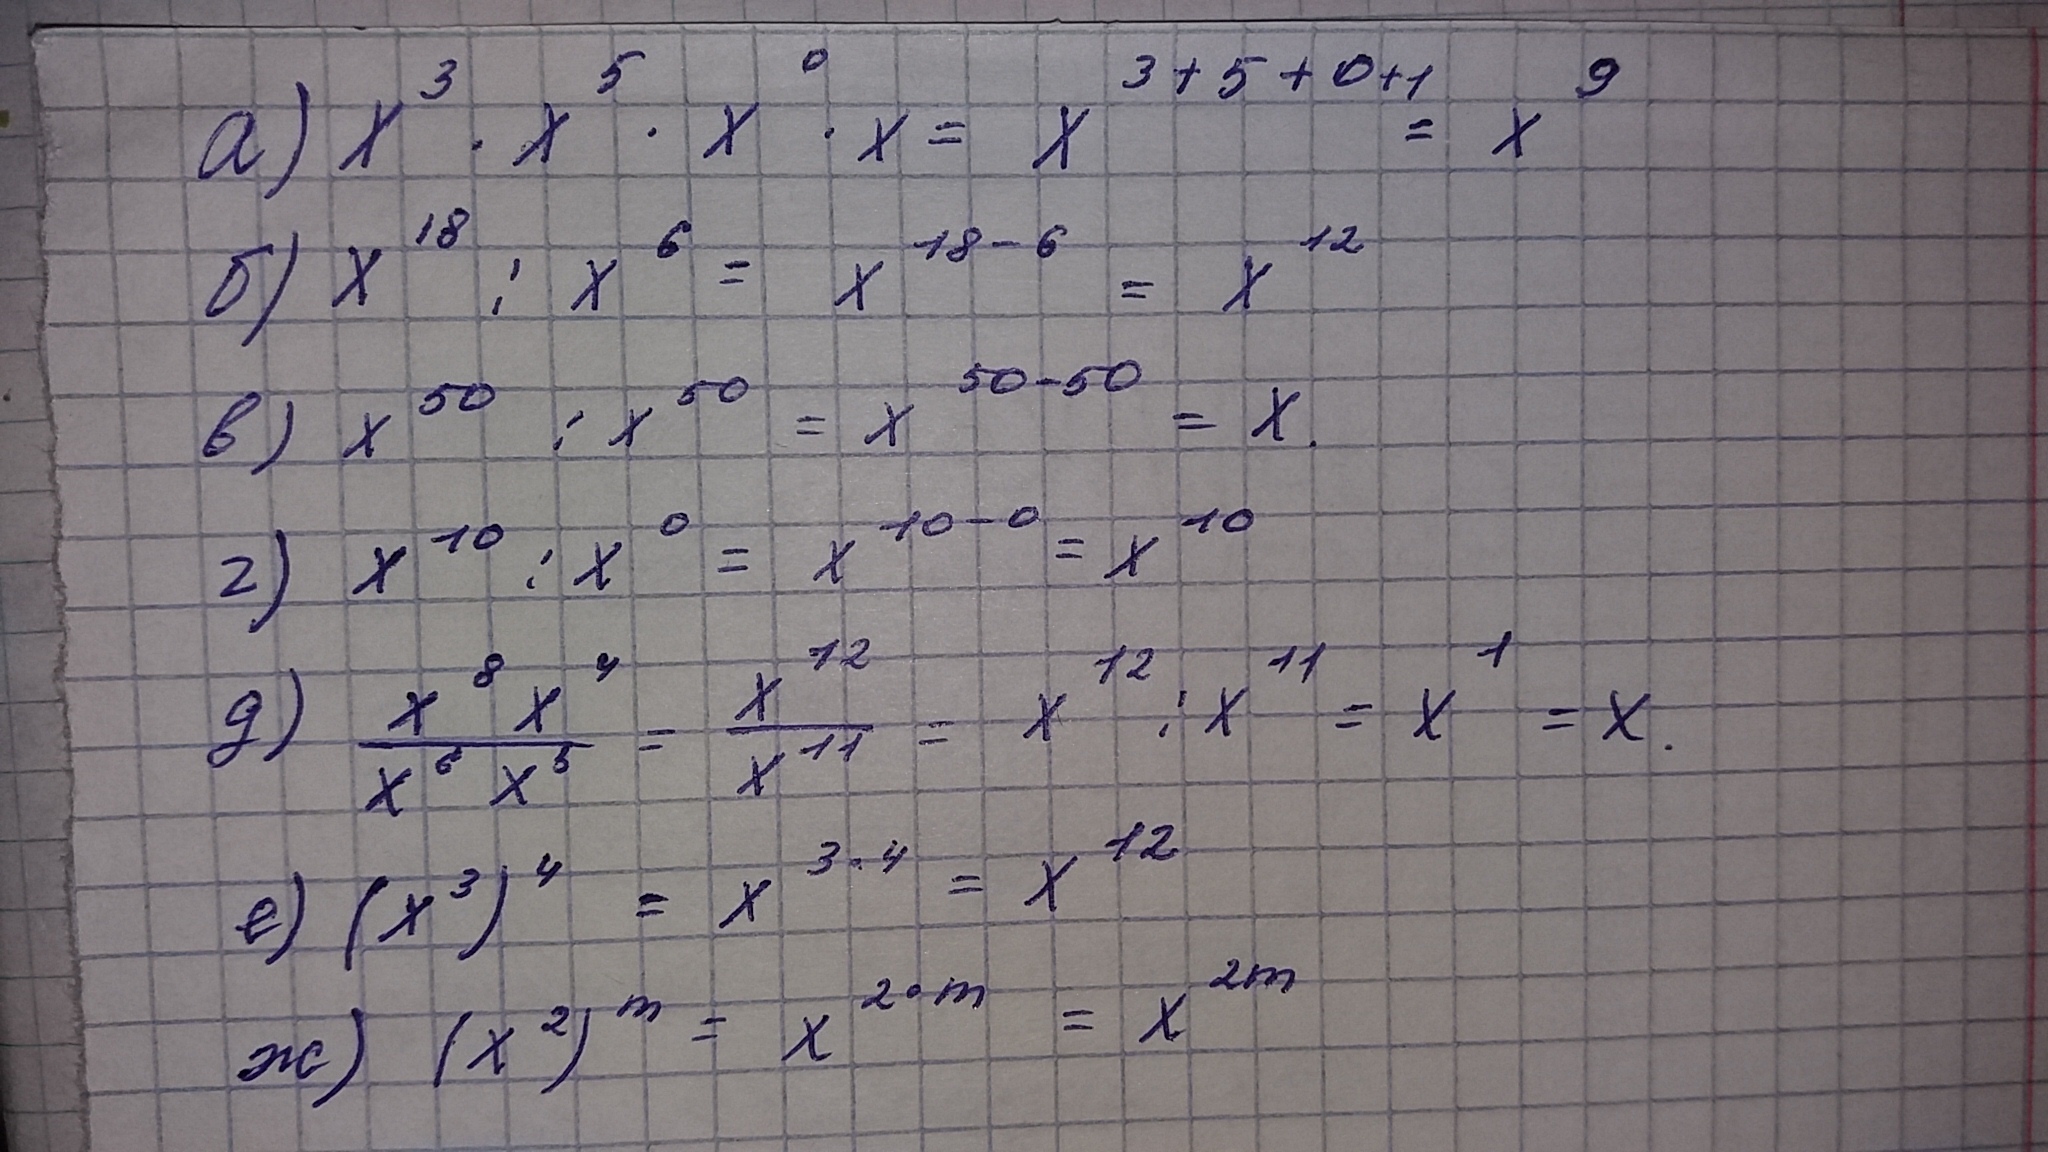 а) x³ · x⁵ · x⁰ · x = x³⁺⁵⁺⁰⁺¹ = x⁹
б) x¹⁸ : x⁶ = x¹⁸⁻⁶ = x¹²
в) x⁵⁰ : x⁵⁰ = x⁵⁰⁻⁵⁰ = x.
г) x¹⁰ : x⁰ = x¹⁰⁻⁰ = x¹⁰
д) \frac{x⁸ x⁴}{x⁶ x⁵} = \frac{x¹²}{x¹¹} = x¹² : x¹¹ = x¹ = x.
е) (x³)⁴ = x^{3·4} = x¹²
ж) (x²)^m = x^{2·m} = x^{2m}